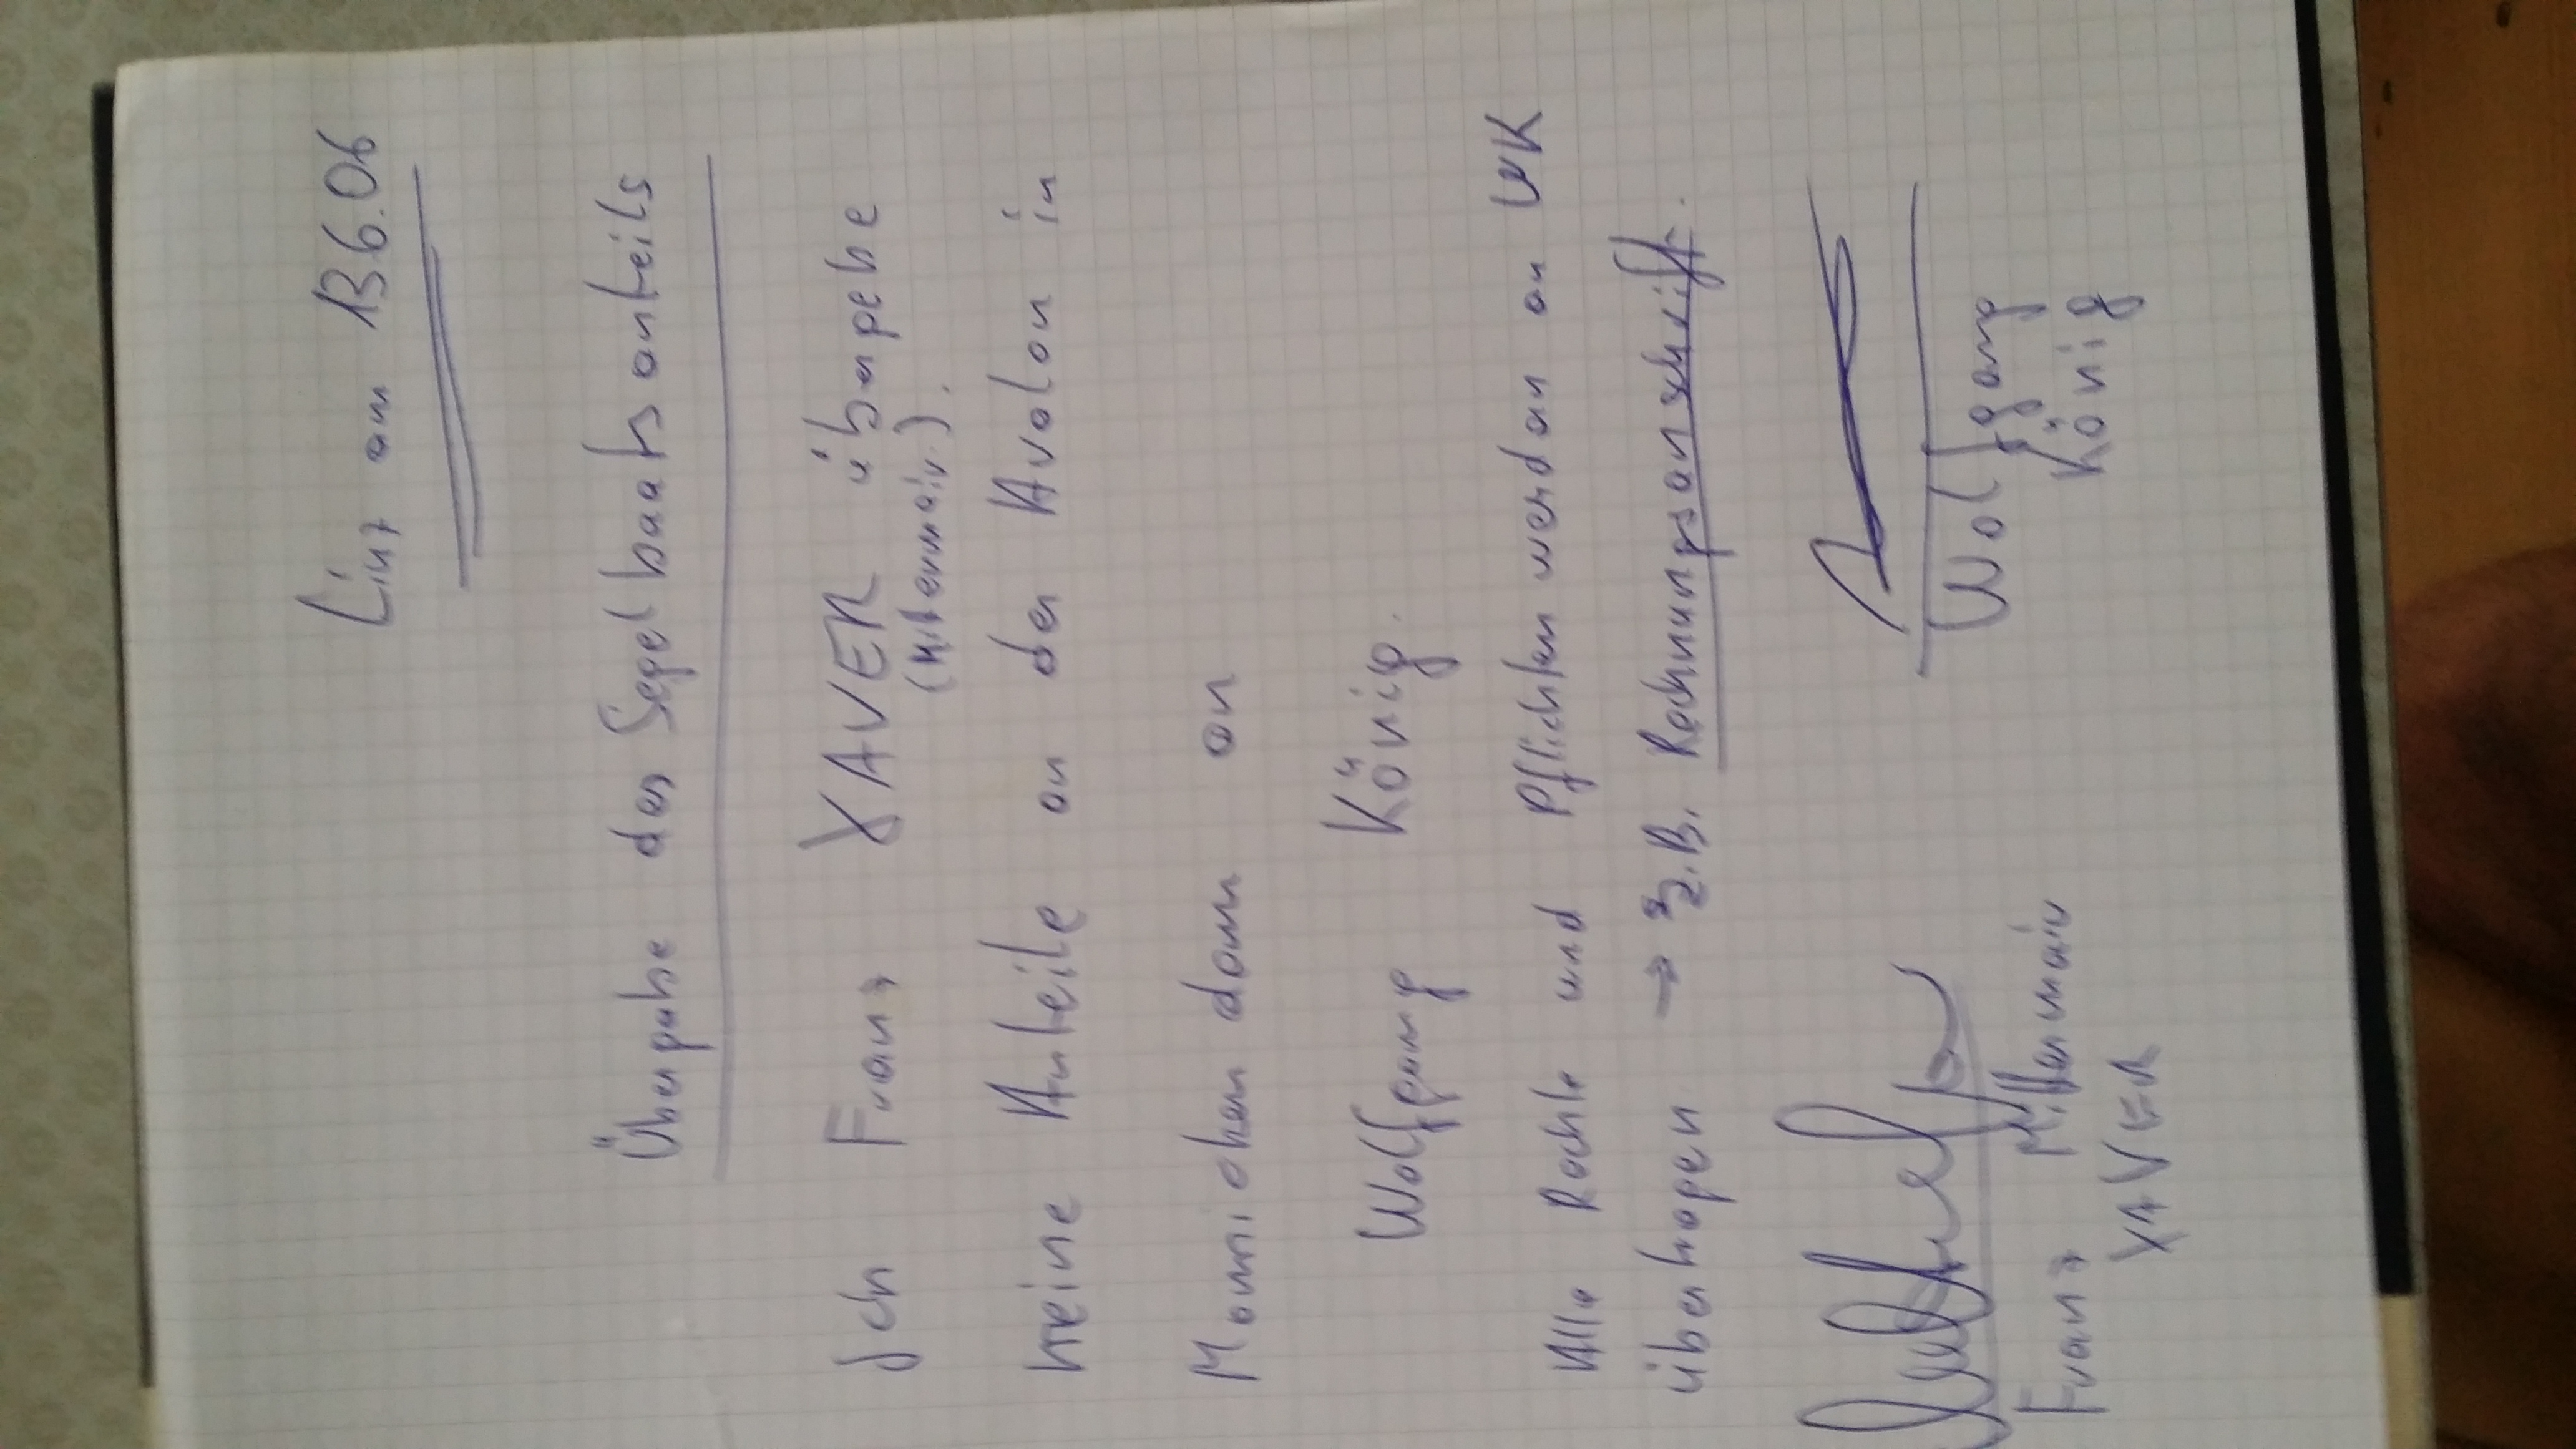 Linz am 13.6.06
Übergabe des Segelbootsanteils
Ich Franz XAVER übergebe
(Mitermair).
meine Anteile an der Avalon in
dem an
Wolfgang König.
Alle Rechte und Pflichten werden an WK
übertragen → z.B. Rechnungsanschrift.
Wolfgang
König
Franz Mittermair
XAVER